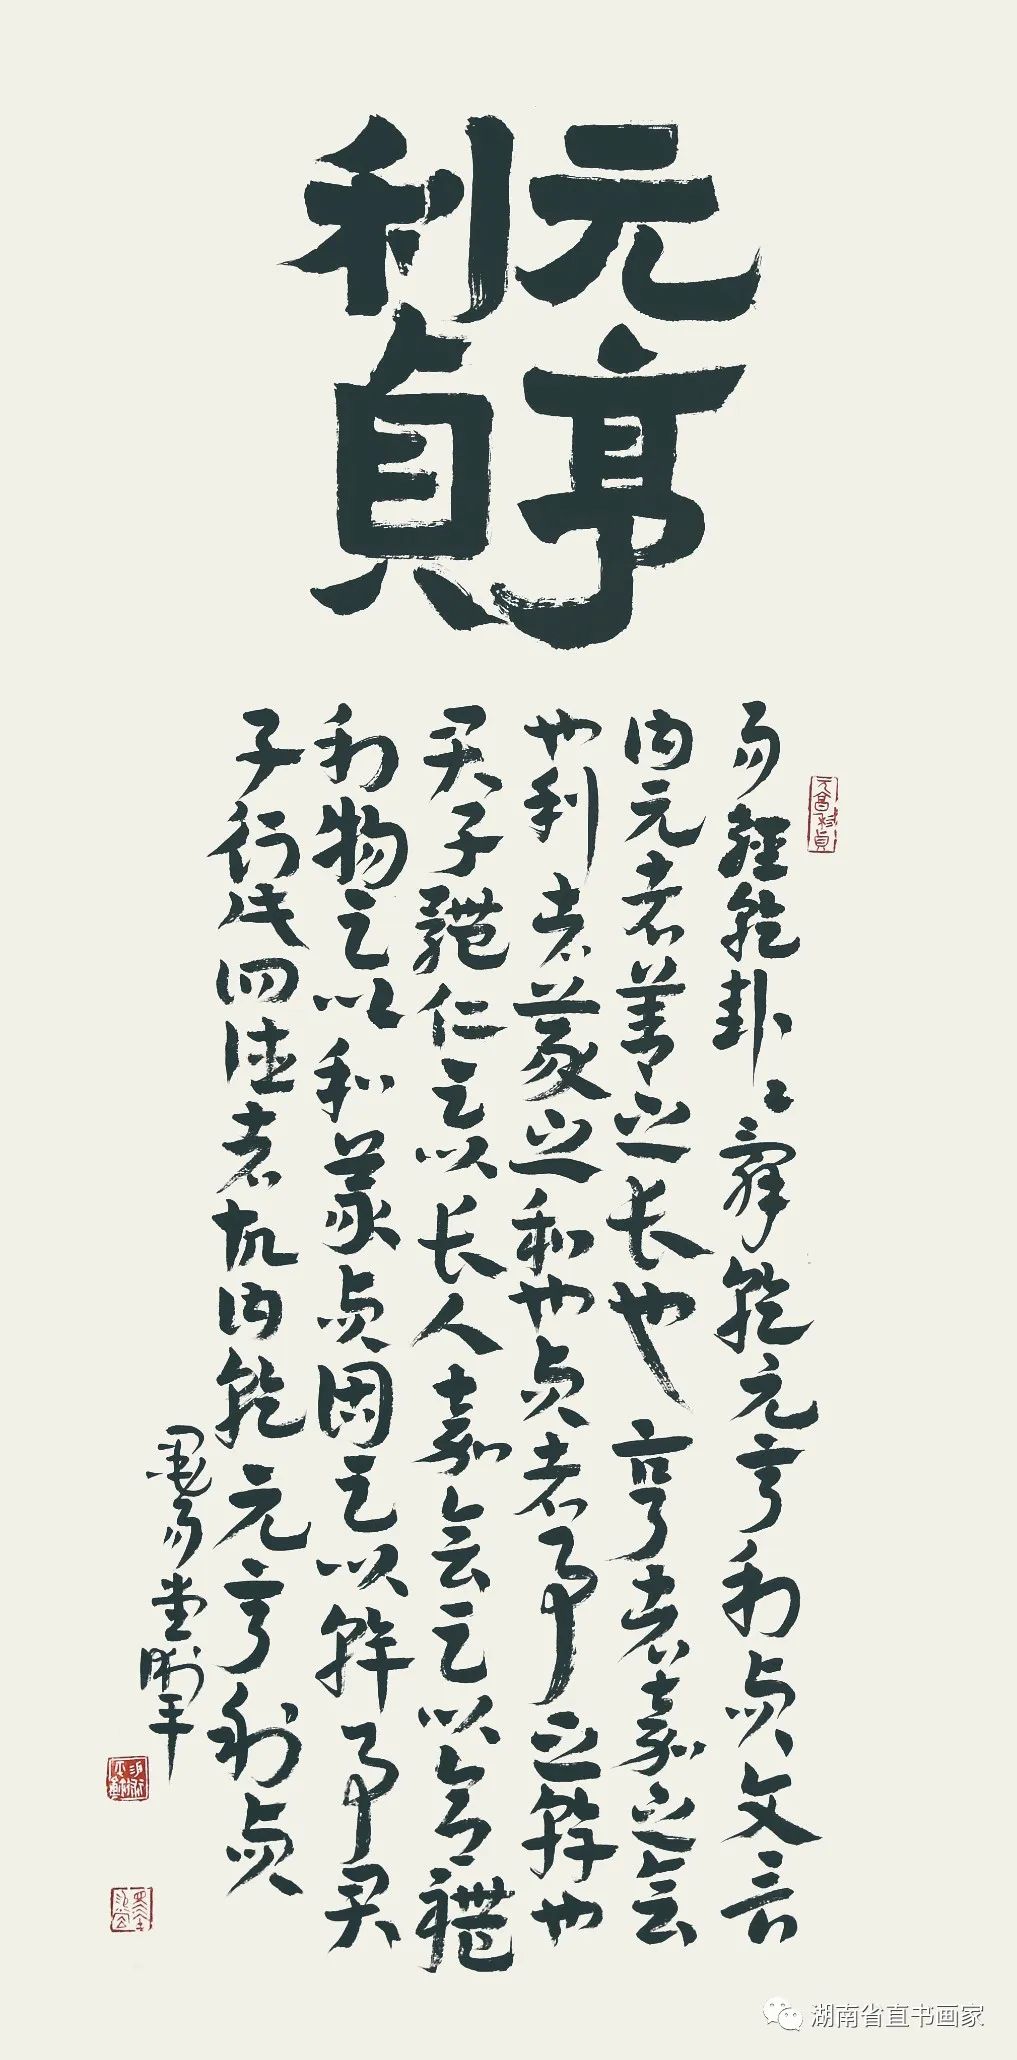 元亨
利貞
元亨利貞
易經乾卦〻辭乾元亨利贞文言
曰元者善之长也亨者嘉之会
也利者義之和也贞者事之幹也
君子體仁足以长人嘉会足以合禮
利物足以和義贞固足以幹事君
子行此四德者故曰乾元亨利贞
墨易堂
湖南省直书画家